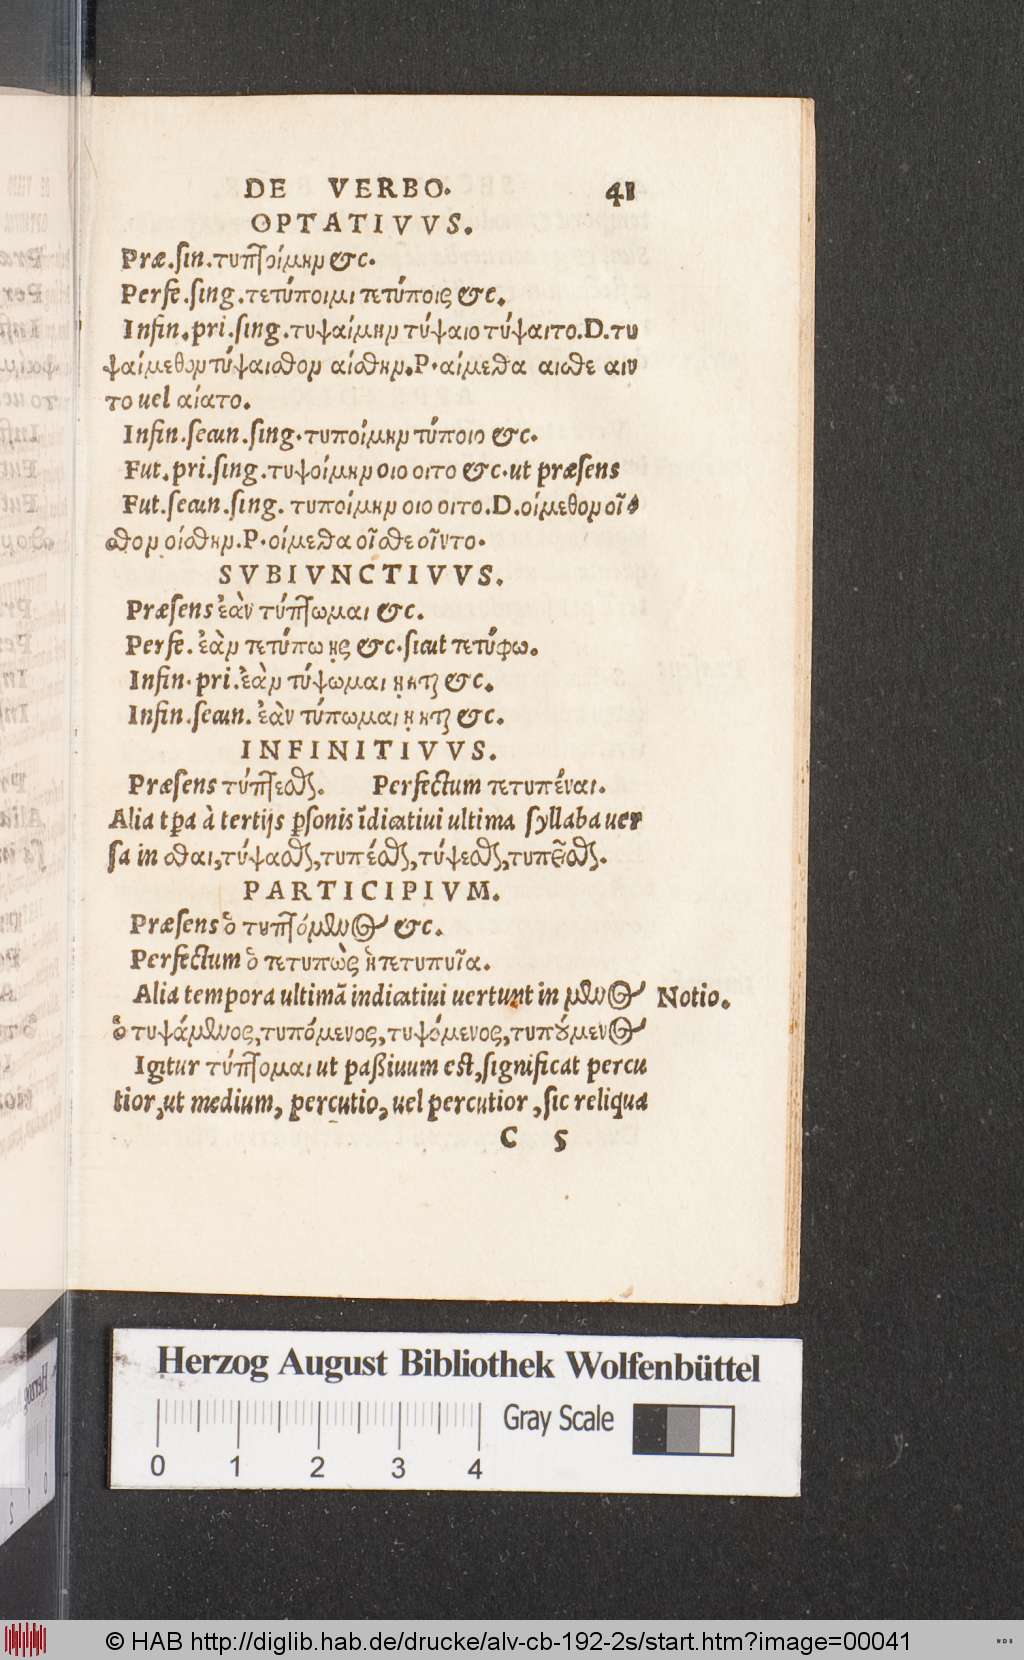 DE VERBO. 41
OPTATIVVS.
Præ.sin.τυπῖοίμην &c.
Perfe.sing.τετύποιμι τετύποις &c.
Infin.pri.sing.τυψαίμην τύψαιο τύψαιτο.D.τυ
ψαίμεθον τύψαισθον αίσθην.P.αίμεθα αισθε αιν
το uel αίατο.
Infin.secun.sing.τυποίμην τύποιο &c.
Fut.pri.sing.τυψοίμην οιο οιτο &c.ut præsens
Fut.secun.sing. τυποίμην οιο οιτο.D.οίμεθον οῖ
σθον οίσθην.P.οίμεθα οῖσθε οῖντο.
SVBIVNCTIVVS.
Præsens ἐὰν τύπτωμαι &c.
Perfe. ἐὰν τετύπω ῃς &c.sicut τετύφω.
Infin.pri.ἐὰν τύψωμαι ῃ ηται &c.
Infin.secun. ἐὰν τύπωμαι ῃ ηται &c.
INFINITIVVS.
Præsens τύπτεσθαι. Perfectum τετυπέναι.
Alia tp̄a à tertijs ꝑsonis īdicatiui ultima syllaba uer
sa in σθαι,τύψασθαι,τυπέσθαι,τύψεσθαι,τυπεῖσθαι.
PARTICIPIVM.
Præsens ὁ τυπτόμενος &c.
Perfectum ὁ τετυπὼς ἡ τετυπυῖα.
Alia tempora ultimā indicatiui uertunt in μενος Notio.
ὁ τυψάμενος,τυπόμενος,τυψόμενος,τυπούμενος
Igitur τύπτομαι ut paßiuum est,significat percu
tior,ut medium, percutio, uel percutior ,sic reliqua
C 5
Herzog August Bibliothek Wolfenbüttel
Gray Scale
0 1 2 3 4
© HAB http://diglib.hab.de/drucke/alv-cb-192-2s/start.htm?image=00041